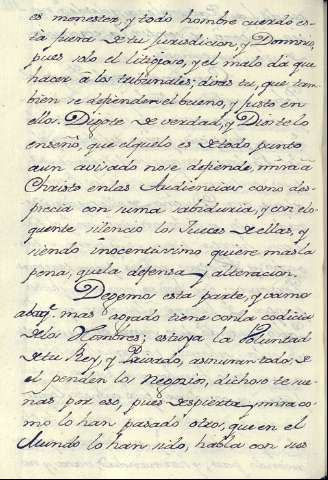 es menester, y todo hombre cuerdo es-
ta fuera de tu jurisdicion, y Dominio,
pues solo el litigioso, y el malo dà que
hacer â los tribunales; diràs tu, que tam-
bien se defienden el bueno, y justo en
ellos. Digote de verdad, y Dios te lo
enseñò, que el quelo es de todo punto
aun avisado no se defiende, mira â
Christo en las Audiencias como des-
precia con suma sabiduria, y con elo-
quente silencio los Jueces de ellas, y
siendo inocentissimo quiere mas la
pena, que la defensa y alteracion.
Dejemos esta parte, y vamo
a la q.e mas agrado tiene con la codicia
de los Hombres; es tuya la Voluntad
de tu Rey, y Privado, asiguran todo; de
el penden los Negocios, dichoso te sue-
ñas por eso, pues despierta, y mira co-
mo lo han pasado otros, que en el
Mundo lo han sido, habla con sus